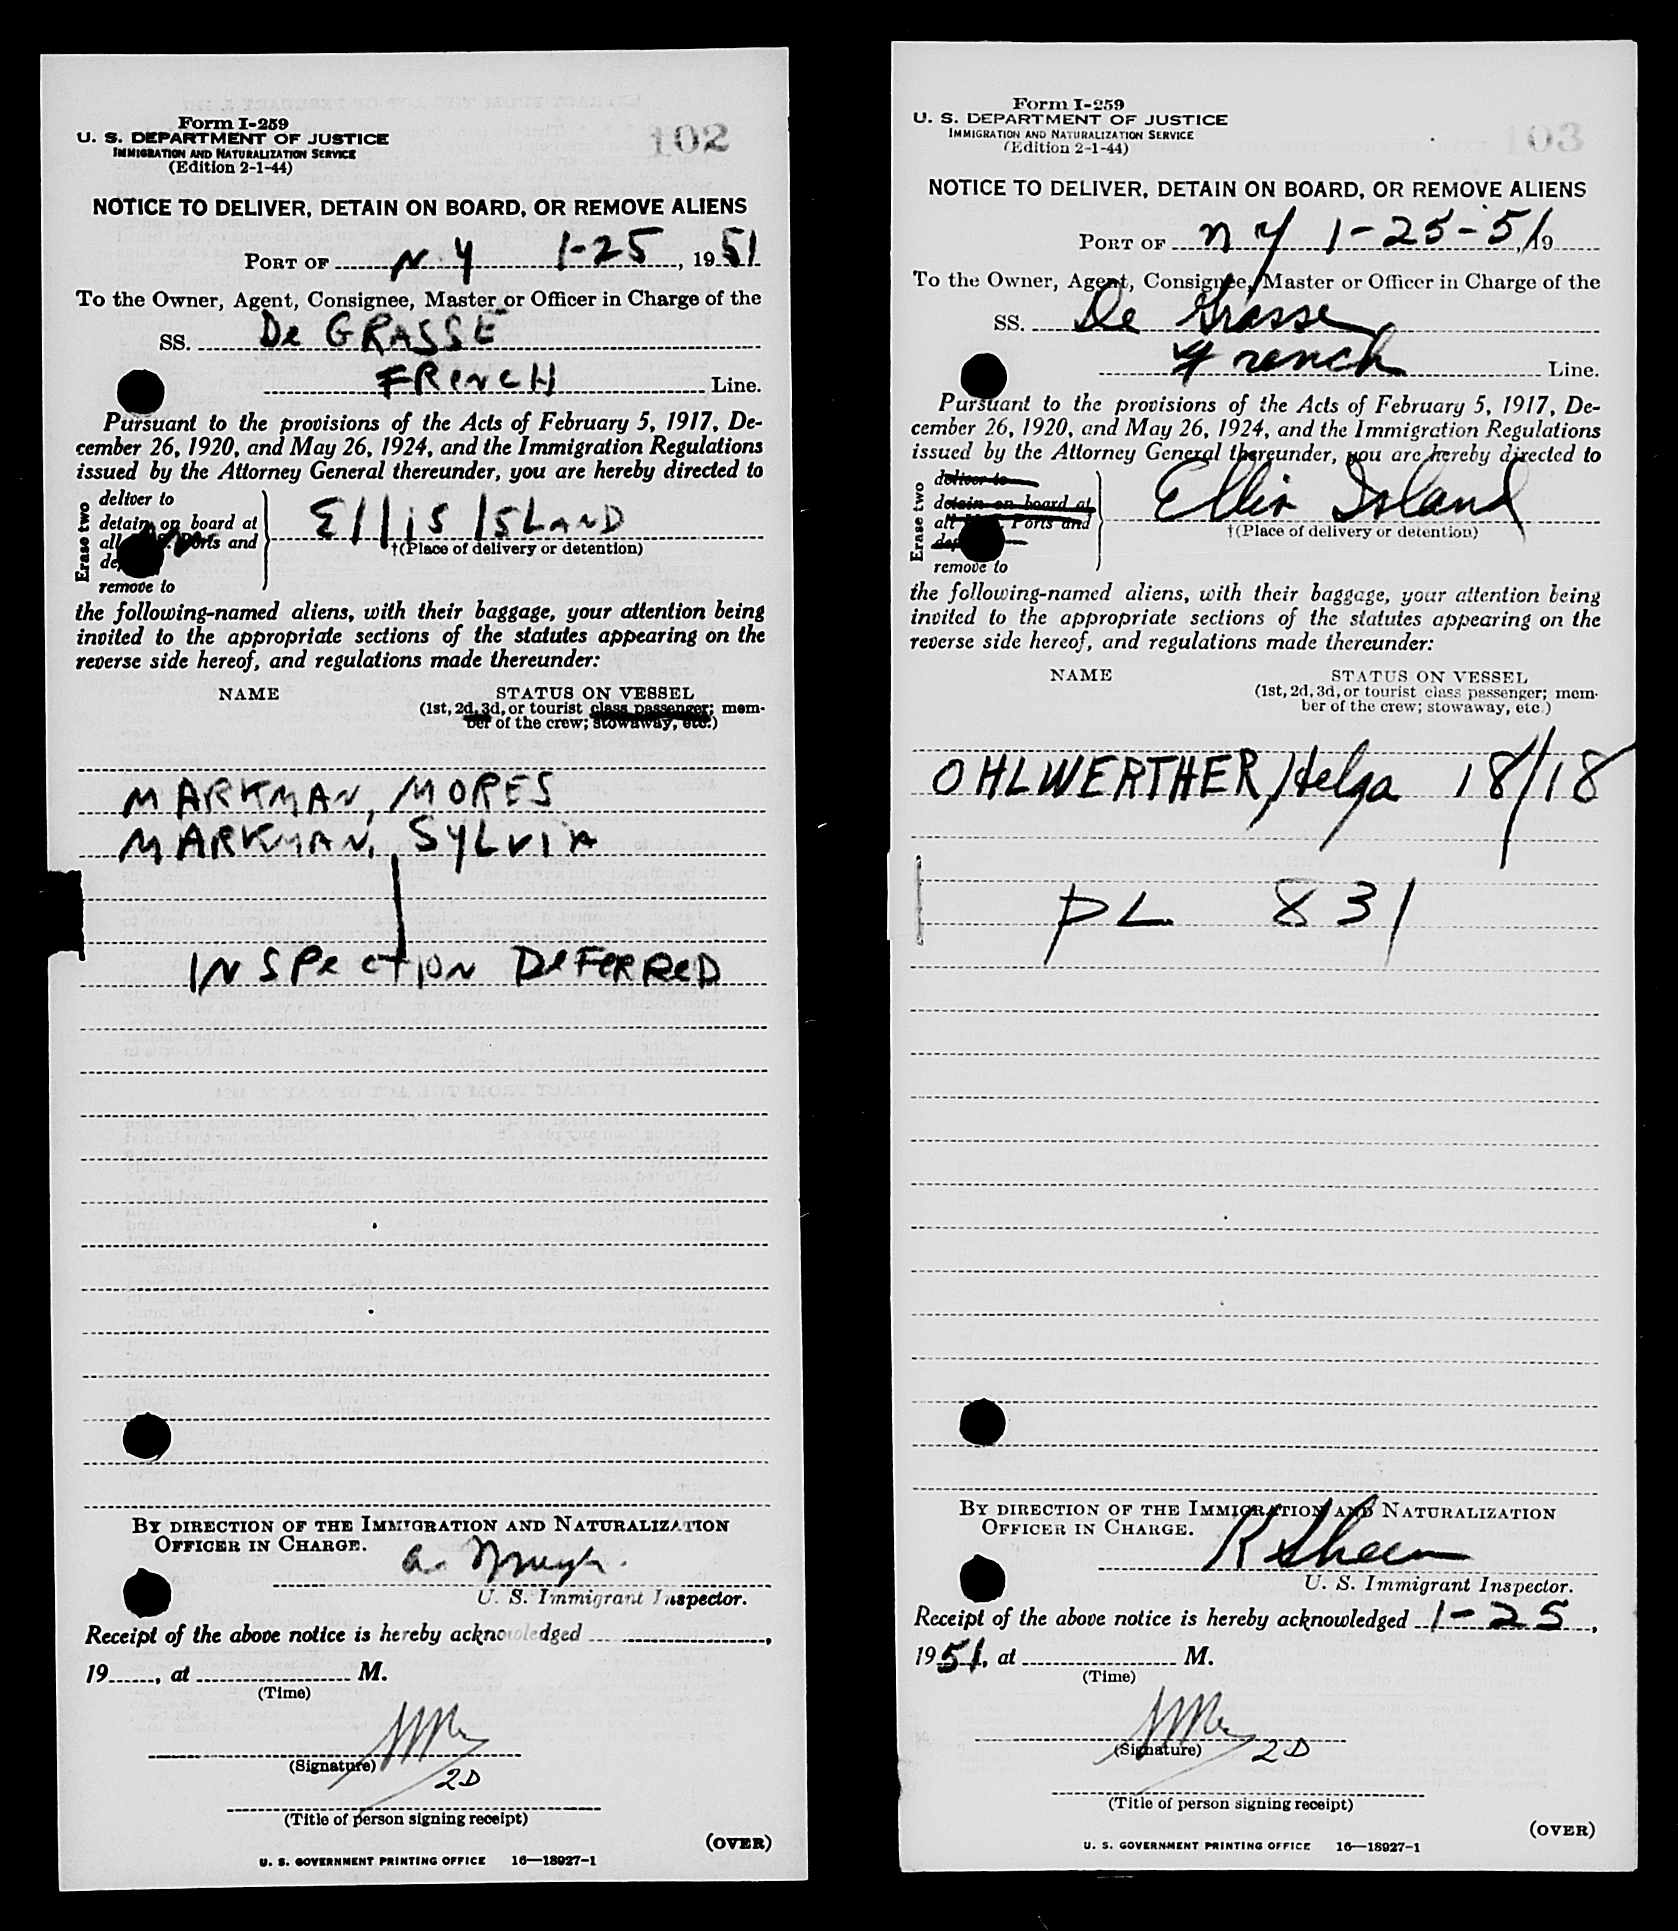 Form I-259
U. S. DEPARTMENT OF JUSTICE
IMMIGRATION AND NATURALIZATION SERVICE
(Edition 2-1-44)
102
NOTICE TO DELIVER, DETAIN ON BOARD, OR REMOVE ALIENS
PORT OF N.Y 1-25, 1951
To the Owner, Agent, Consignee, Master or Officer in Charge of the
SS. De GRASSE
FRENCH Line.
Pursuant to the provisions of the Acts of February 5, 1917, De-
cember 26, 1920, and May 26, 1924, and the Immigration Regulations
issued by the Attorney General thereunder, you are hereby directed to
Erase two
deliver to
detain on board at
all Ports and
remove to
Ellis ISLAND
†(Place of delivery or detention)
the following-named aliens, with their baggage, your attention being
invited to the appropriate sections of the statutes appearing on the
reverse side hereof, and regulations made thereunder:
NAME STATUS ON VESSEL
(1st, 2d, 3d, or tourist class passenger; mem-
ber of the crew; stowaway, etc.)
MARKMAN, MORES
MARKMAN, SYLVIA
INSPECTION DEFERRED
BY DIRECTION OF THE IMMIGRATION AND NATURALIZATION
OFFICER IN CHARGE.
U. S. Immigrant Inspector.
Receipt of the above notice is hereby acknowledged ,
19 , at M.
(Time)
(Signature)
2D
(Title of person signing receipt)
(OVER)
U. S. GOVERNMENT PRINTING OFFICE 16—18927-1
Form I-259
U. S. DEPARTMENT OF JUSTICE
IMMIGRATION AND NATURALIZATION SERVICE
(Edition 2-1-44)
103
NOTICE TO DELIVER, DETAIN ON BOARD, OR REMOVE ALIENS
PORT OF NY 1-25-51, 19
To the Owner, Agent, Consignee, Master or Officer in Charge of the
SS. De Grasse
French Line.
Pursuant to the provisions of the Acts of February 5, 1917, De-
cember 26, 1920, and May 26, 1924, and the Immigration Regulations
issued by the Attorney General thereunder, you are hereby directed to
Erase two
deliver to
detain on board at
all Ports and
remove to
Ellis Island
†(Place of delivery or detention)
the following-named aliens, with their baggage, your attention being
invited to the appropriate sections of the statutes appearing on the
reverse side hereof, and regulations made thereunder:
NAME STATUS ON VESSEL
(1st, 2d, 3d, or tourist class passenger; mem-
ber of the crew; stowaway, etc.)
OHLWERTHER, Helga 18/18
PL 831
BY DIRECTION OF THE IMMIGRATION AND NATURALIZATION
OFFICER IN CHARGE.
U. S. Immigrant Inspector.
Receipt of the above notice is hereby acknowledged 1-25,
1951, at M.
(Time)
(Signature)
2D
(Title of person signing receipt)
(OVER)
U. S. GOVERNMENT PRINTING OFFICE 16—18927-1